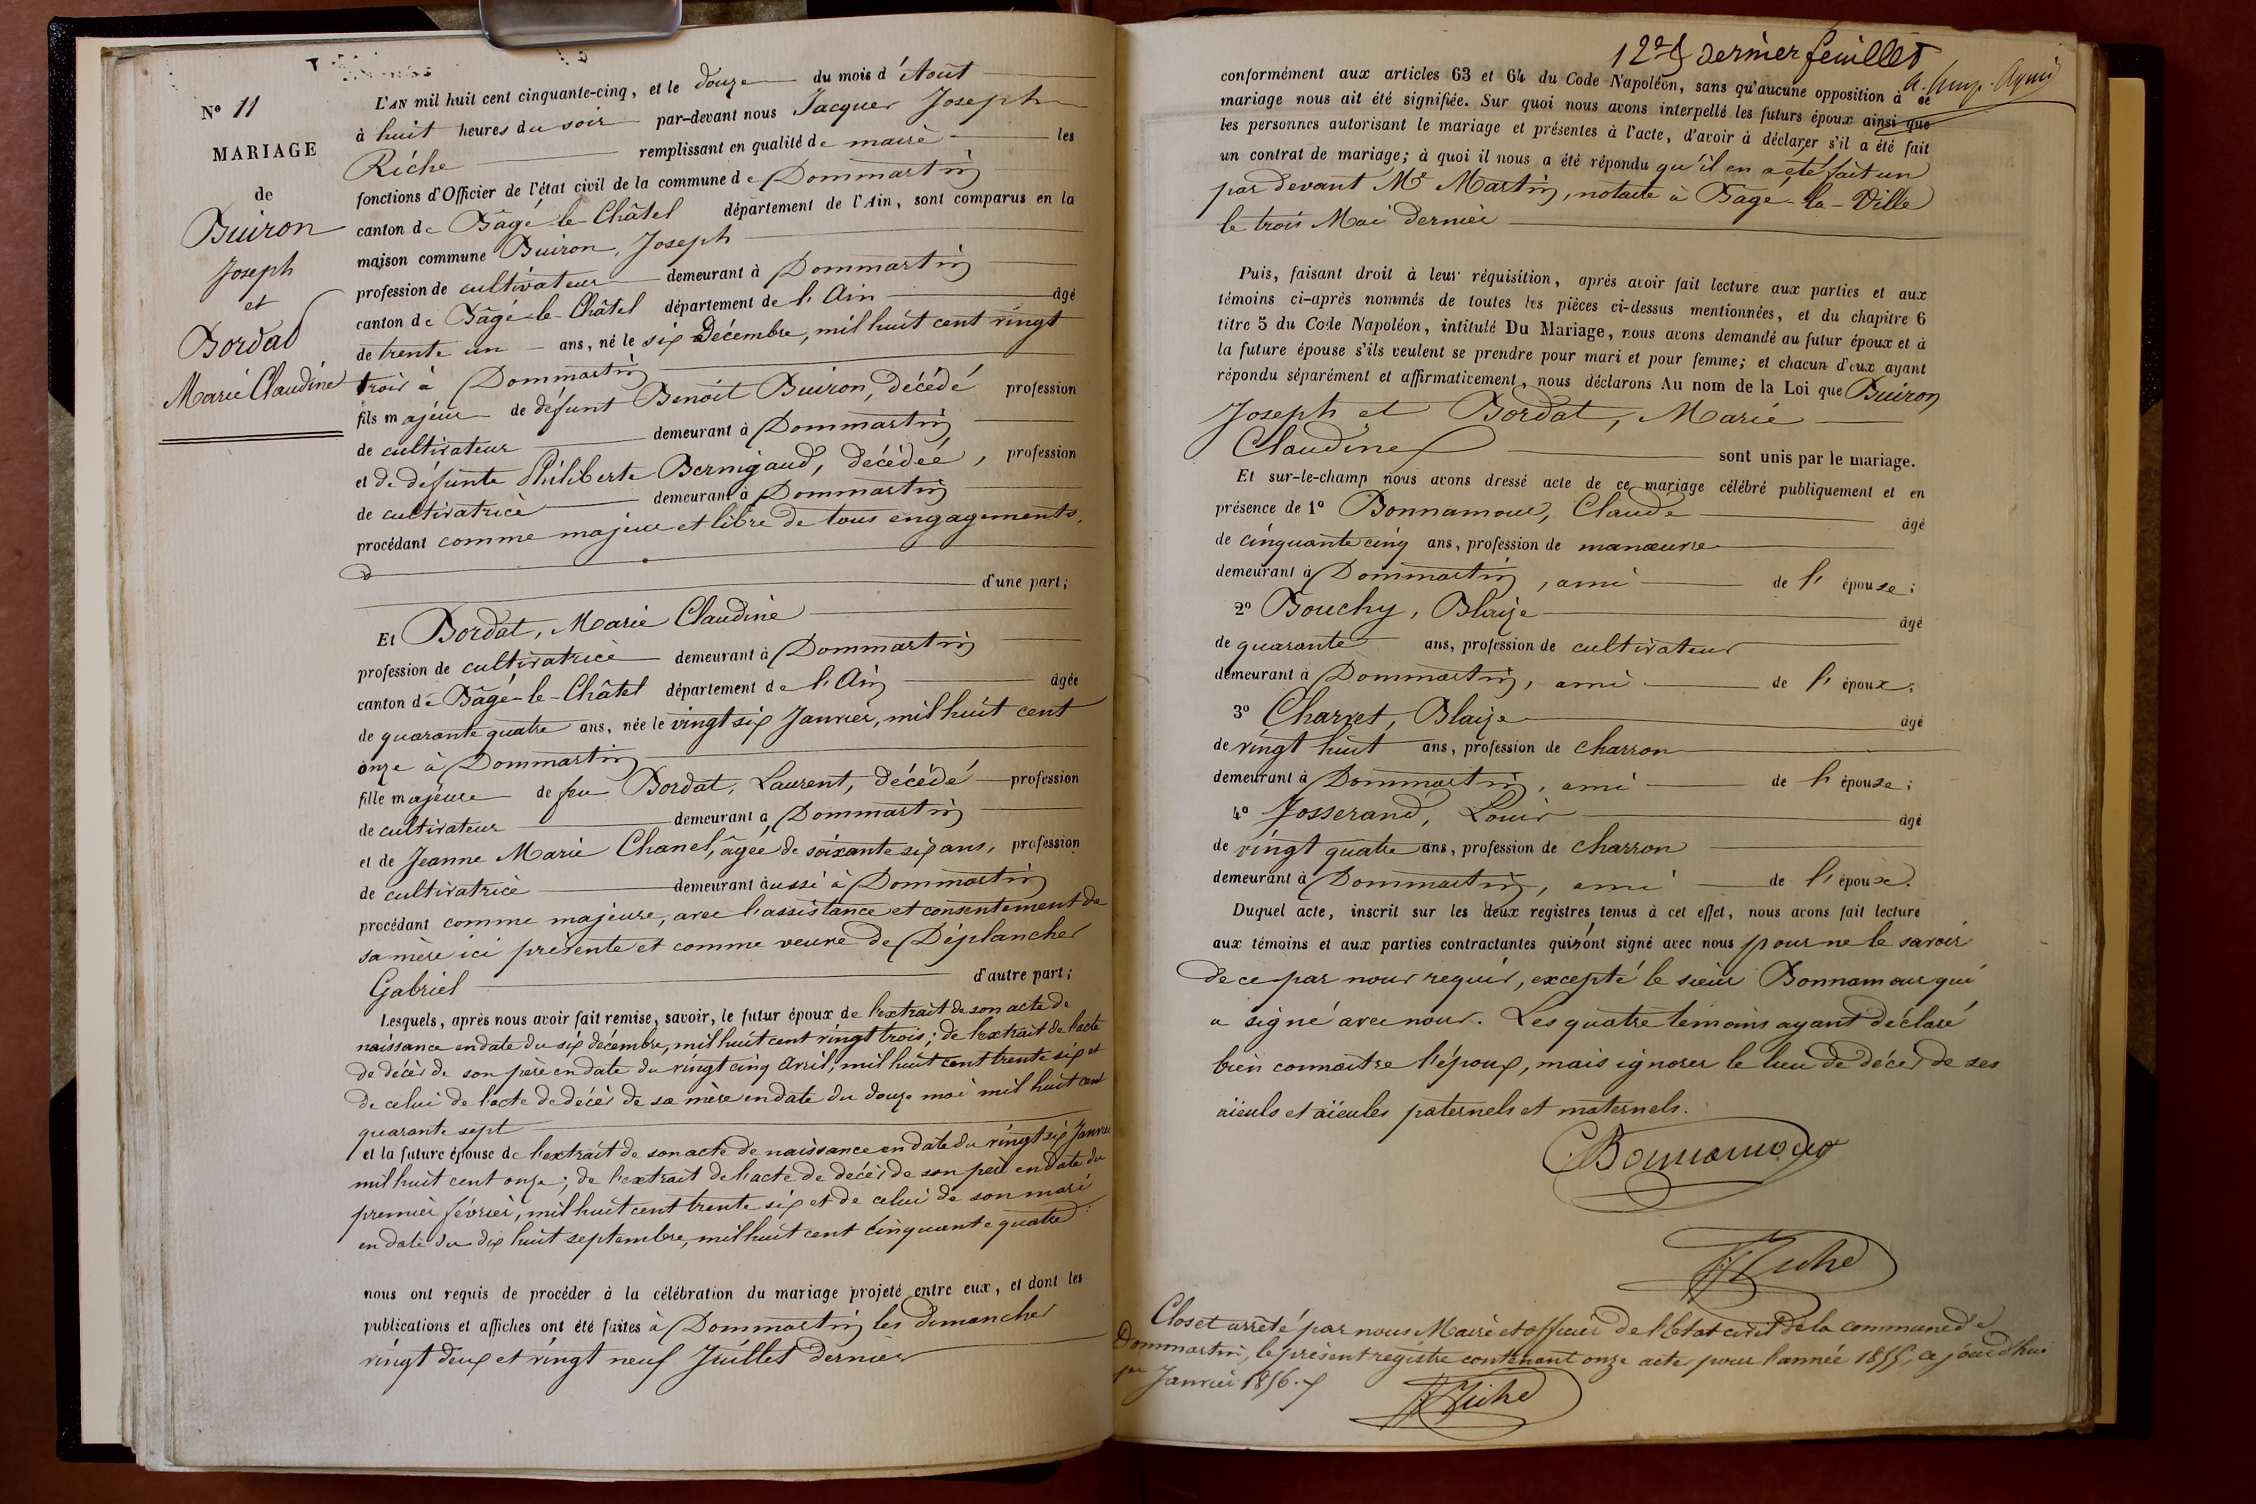 N° 11
MARIAGE
de
Buiron
Joseph
et
Bordat
Marie Claudine
L'AN mil huit cent cinquante-cinq, et le douze du mois d'Août
à huit heures du soir par-devant nous Jacques Joseph
Riche remplissant en qualité de maire les
fonctions d'Officier de l'état civil de la commune de Dommartin
canton de Bâgé-le-Châtel département de l'Ain, sont comparus en la
maison commune Buiron, Joseph
profession de cultivateur demeurant à Dommartin
canton de Bâgé-le-Châtel département de l'Ain âgé
de trente un ans, né le six Décembre, mil huit cent vingt
trois à Dommartin
fils majeur de défunt Benoit Buiron, décédé profession
de cultivateur demeurant à Dommartin
et de défunte Philiberte Bernigaud, décédée, profession
de cultivatrice demeurant à Dommartin
procédant comme majeur et libre de tous engagements,
d'une part;
Et Bordat, Marie Claudine
profession de cultivatrice demeurant à Dommartin
canton de Bâgé-le-Châtel département de l'Ain âgée
de quarante quatre ans, née le vingt six Janvier, mil huit cent
onze à Dommartin
fille majeure de feu Bordat, Laurent, décédé profession
de cultivateur demeurant à Dommartin
et de Jeanne Marie Chanel, âgée de soixante six ans, profession
de cultivatrice demeurant aussi à Dommartin
procédant comme majeure, avec l'assistance et consentement de
sa mère ici présente et comme veuve de Déplanches
Gabriel d'autre part;
Lesquels, après nous avoir fait remise, savoir, le futur époux de l'extrait de son acte de
naissance en date du six décembre, mil huit cent vingt trois; de l'extrait de l'acte
de décès de son père en date du vingt cinq avril, mil huit cent trente six et
de celui de l'acte de décès de sa mère en date du douze mai mil huit cent
quarante sept
et la future épouse de l'extrait de son acte de naissance en date du vingt six Janvier
mil huit cent onze; de l'extrait de l'acte de décès de son père en date du
premier février, mil huit cent trente six et de celui de son mari
en date du dix huit septembre, mil huit cent cinquante quatre
nous ont requis de procéder à la célébration du mariage projeté entre eux, et dont les
publications et affiches ont été faites à Dommartin les dimanches
vingt deux et vingt neuf Juillet dernier
12e & dernier feuillet
conformément aux articles 63 et 64 du Code Napoléon, sans qu'aucune opposition à ce
mariage nous ait été signifiée. Sur quoi nous avons interpellé les futurs époux ainsi que
les personnes autorisant le mariage et présentes à l'acte, d'avoir à déclarer s'il a été fait
un contrat de mariage; à quoi il nous a été répondu qu'il en a été fait un
par devant Me Martin, notaire à Bagé-la-Ville
le trois Mai dernier
Puis, faisant droit à leur réquisition, après avoir fait lecture aux parties et aux
témoins ci-après nommés de toutes les pièces ci-dessus mentionnées, et du chapitre 6
titre 5 du Code Napoléon, intitulé Du Mariage, nous avons demandé au futur époux et à
la future épouse s'ils veulent se prendre pour mari et pour femme; et chacun d'eux ayant
répondu séparément et affirmativement, nous déclarons Au nom de la Loi que Buiron
Joseph et Bordat, Marie
Claudine sont unis par le mariage.
Et sur-le-champ nous avons dressé acte de ce mariage célébré publiquement et en
présence de 1° Bonnamour, Claude âgé
de cinquante cinq ans, profession de manœuvre
demeurant à Dommartin, ami de l'épouse;
2° Bouchy, Blaize âgé
de quarante ans, profession de cultivateur
demeurant à Dommartin, ami de l'époux;
3° Charvet, Blaize âgé
de vingt huit ans, profession de charron
demeurant à Dommartin, ami de l'épouse;
4° Josserand, Louis âgé
de vingt quatre ans, profession de charron
demeurant à Dommartin, ami de l'époux.
Duquel acte, inscrit sur les deux registres tenus à cet effet, nous avons fait lecture
aux témoins et aux parties contractantes qui n'ont signé avec nous pour ne le savoir
de ce par nous requis, excepté le sieur Bonnamour qui
a signé avec nous. Les quatre témoins ayant déclaré
bien connaître l'époux, mais ignorer le lieu de décès de ses
aïeuls et aïeules paternels et maternels.
C Bonnamour
JJ Riche
Clos et arrêté par nous Maire et officier de l'Etat civil de la commune de
Dommartin, le présent registre contenant onze actes pour l'année 1855, ce jourd'hui
1er Janvier 1856.
JJ Riche